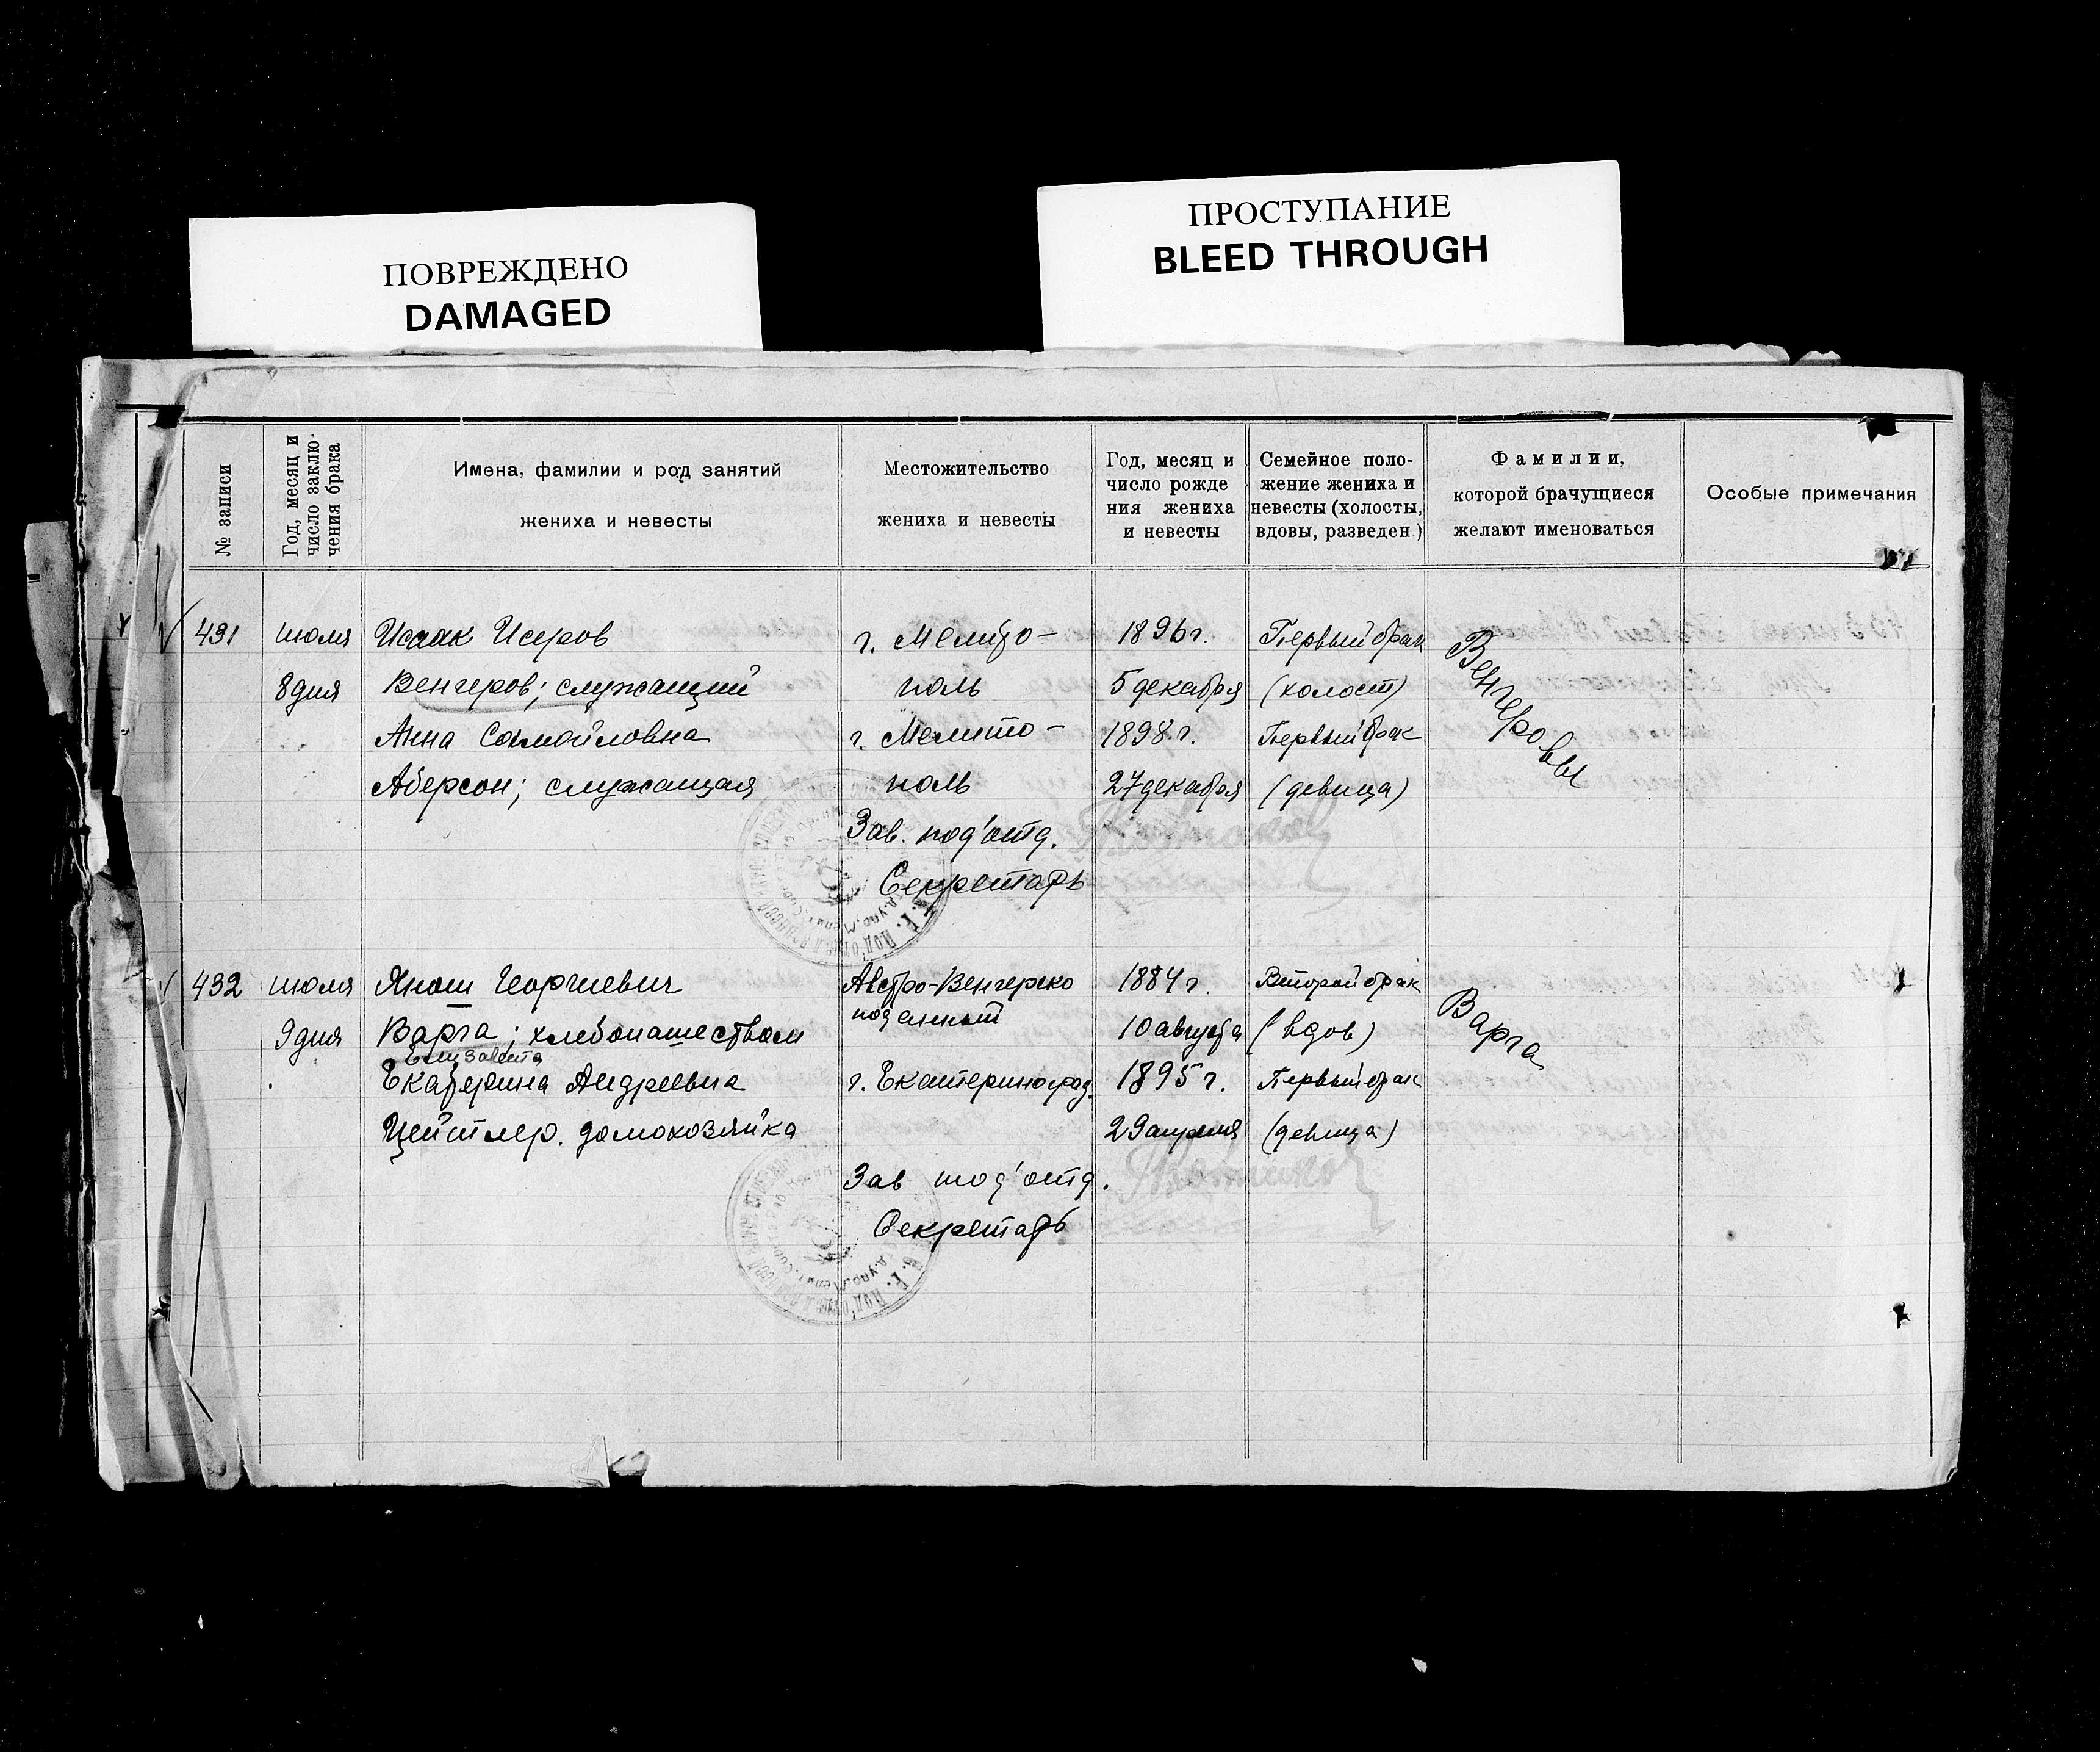 ПОВРЕЖДЕНО
DAMAGED
ПРОСТУПАНИЕ
BLEED THROUGH
№ записи
Год, месяц и
число заклю-
чения брака
Имена, фамилии и род занятий
жениха и невесты
Местожительство
жениха и невесты
Год, месяц и
число рожде
ния жениха
и невесты
Семейное поло-
жение жениха и
невесты (холосты,
вдовы, разведен.)
Фамилии,
которой брачущиеся
желают именоваться
Особые примечания
431 июля Исаак Исеров г. Мелито- 1896г. Первый брак Венгеровы
8 дня Венгеров; служащий поль 5 декабря (холост)
Анна Самойловна г. Мелито- 1898 г. Первый брак
Аберсон; служащая поль 27 декабря (девица)
Зав. под'отд.
Секретарь
432 июля Янош Георгиевич Австро-Венгерско 1884 г. Второй брак Варга
9 дня Варга; хлебопашеством подданный 10 августа (вдов)
Елизавета
Екатерина Андреевна г. Екатериноград. 1895 г. Первый брак
Цейтлер. домохозяйка 29 апреля (девица)
Зав под'отд.
Секретарь